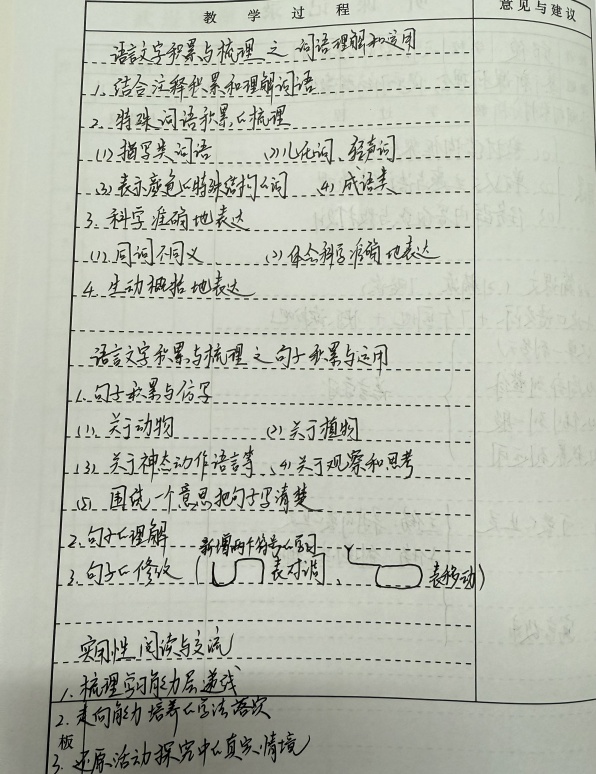 教 学 过 程 意见与建议
语言文字积累与梳理 之 词语理解和运用
1、结合注释积累和理解词语
2、特殊词语积累与梳理
(1) 描写类词语 (2) 儿化词、轻声词
(3) 表示颜色的特殊结构的词 (4) 成语类
3、科学准确地表达
(1) 同词不同义 (2) 体会科学准确地表达
4、生动概括地表达
语言文字积累与梳理 之 句子积累与运用
1、句子积累与仿写
(1) 关于动物 (2) 关于植物
(3) 关于神态动作语言等 (4) 关于观察和思考
(5) 围绕一个意思把句子写清楚
2、句子的理解
新增两个符号的学习
3、句子的修改 ( 表对调、 表移动)
实用性阅读与交流
1、梳理学习能力层递线
2、走向能力培养的学法落实
板
3、还原活动探究中的真实情境